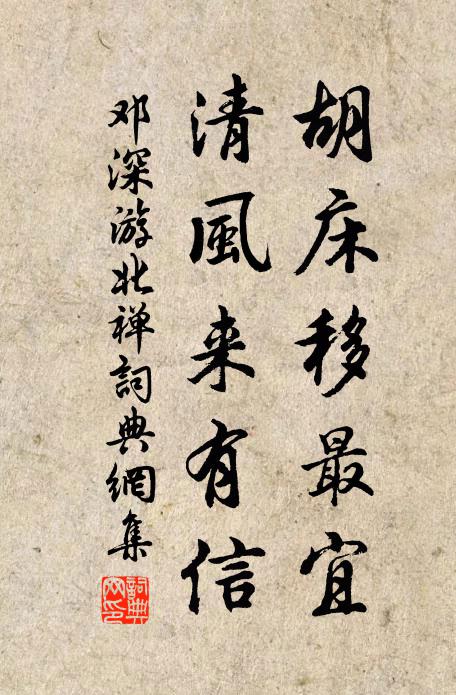 胡床移最宜
清風来有信
邓深游北禅詞典網集
詞典
文印